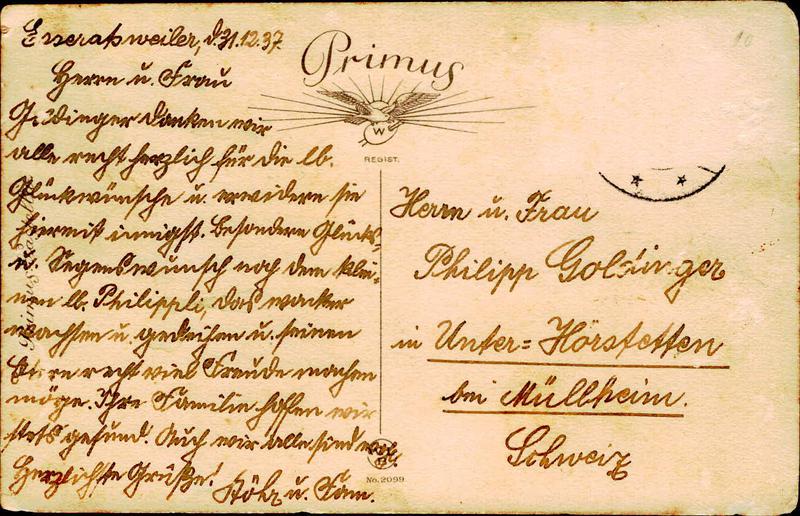 Esseratsweiler, d. 31.12.37.
Herrn u. Frau
danken wir
alle recht herzlich für die lb.
Glückwünsche u. erwidern sie
hiermit innigst. Besondern Glücks-
u. Segenswunsch noch dem klei-
nen lb. Philippli, das wacker
wachsen u. gedeihen u. seinen
Eltern recht viel Freude machen
möge. Ihre Familie hoffen wir
stets gesund. Auch wir alle sind
Herzlichste Grüße!
u. Fam.
Primus
W
REGIST.
Herrn u. Frau
Philipp Goldinger
in Unter-Hörstetten
bei Müllheim.
Schweiz
No. 2099
10